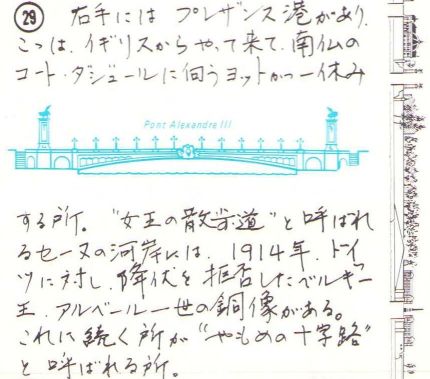 29 右手には プレザンス港があり、
こゝは、イギリスからやって来て、南仏の
コート・ダジュールに向うヨットが一休み
Pont Alexandre III
する所。"女王の散歩道"と呼ばれ
るセーヌの河岸には、1914年、ドイ
ツに対し、降伏を拒否したベルギー
王、アルベール一世の銅像がある。
これに続く所が"やもめの十字路"
と呼ばれる所。